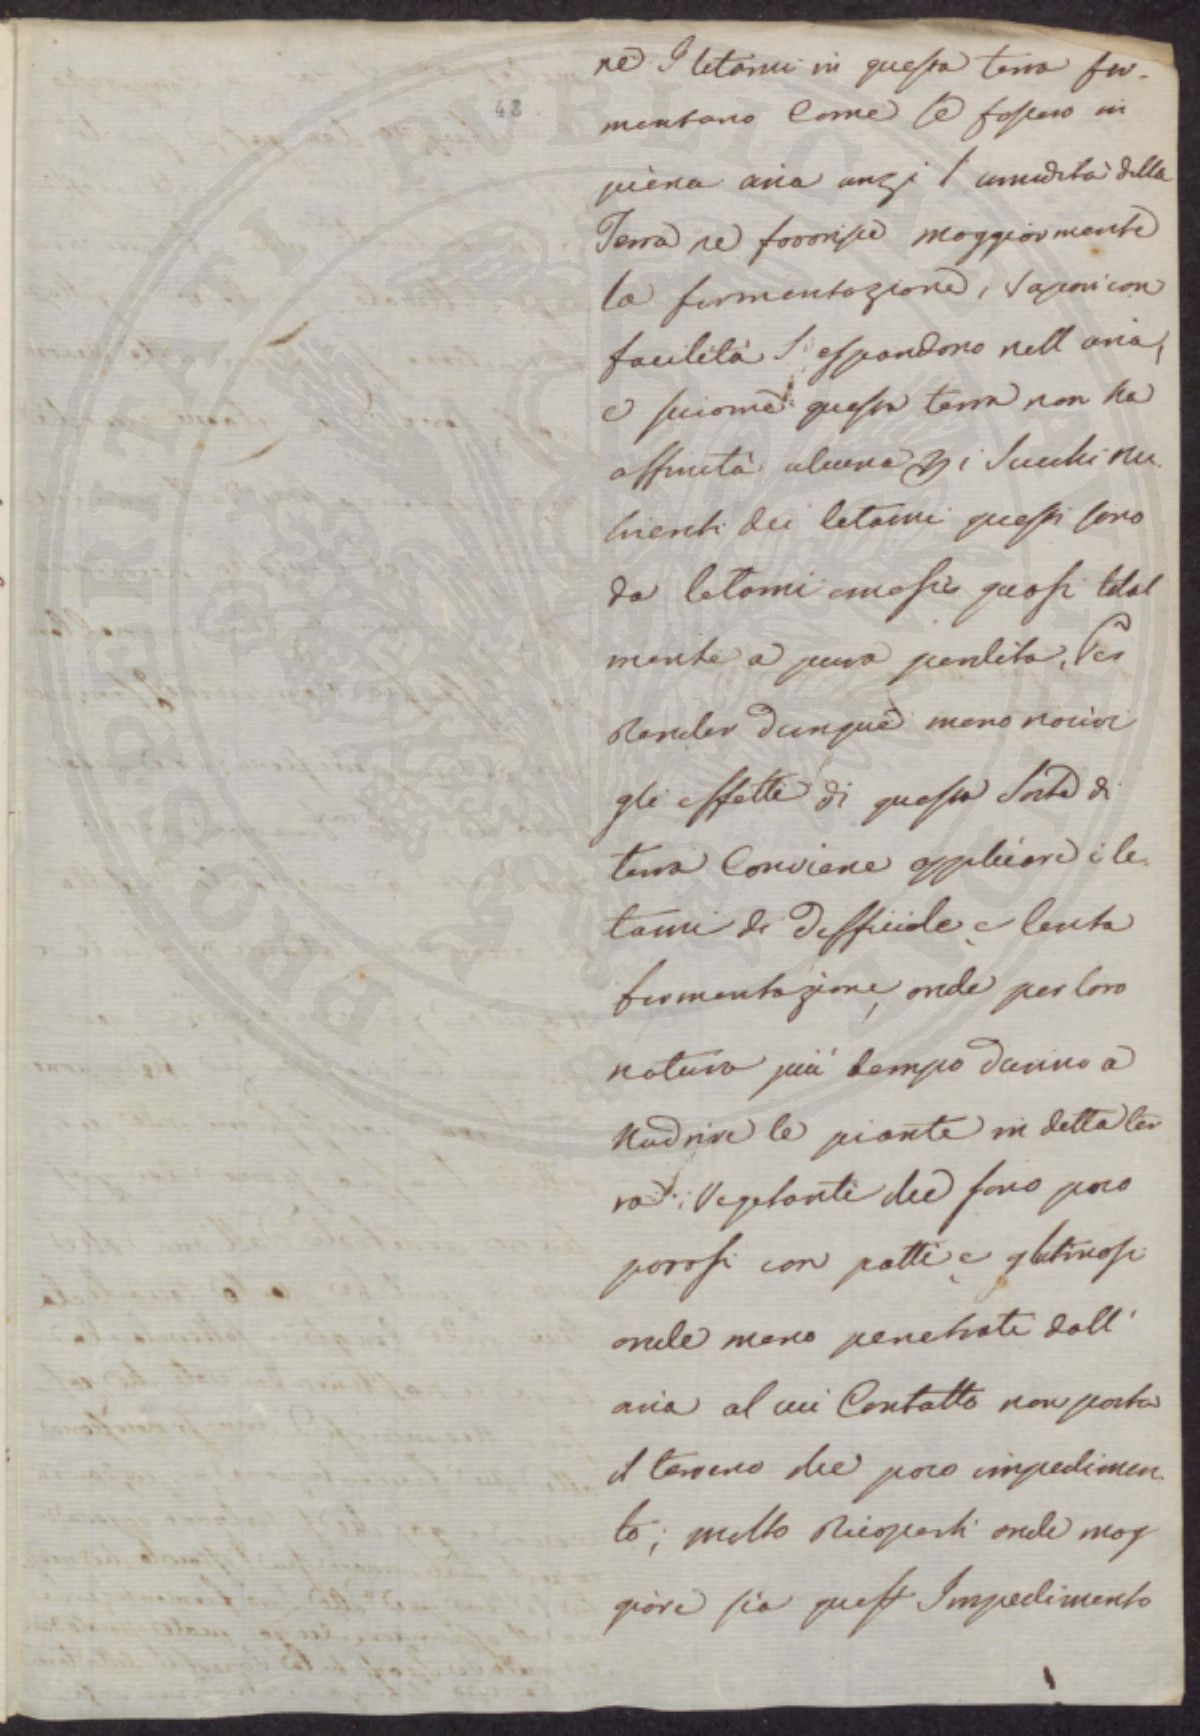 48
ne I letami in questa terra fer-
mentano Come se fossero in
piena aria anzi l'umidità della
Terra ne favorisce maggiormente
la fermentazione, i vapori con
facilità Si espandono nell aria,
e siccome questa terra non ha
affinità alcuna p i Succhi nu
trienti dei letami questi sono
da letami emessi quasi total
mente a pura perdita. Per
Render dunque meno nocivi
gli effetti di questa Sorte di
terra Conviene applicare i le-
tami di difficile e lenta
fermentazione, onde per loro
natura più tempo durino a
Nudrire le piante in detta ter
ra: Vegetanti che sono poco
porosi con patti e glutinosi
onde meno penetrati dall'
aria al cui Contatto non porta
il terreno che poco impedimen-
to; molto Ricoperti onde mag
giore sia quest Impedimento
PROSPERITATI PUBLICAE AUGENDAE